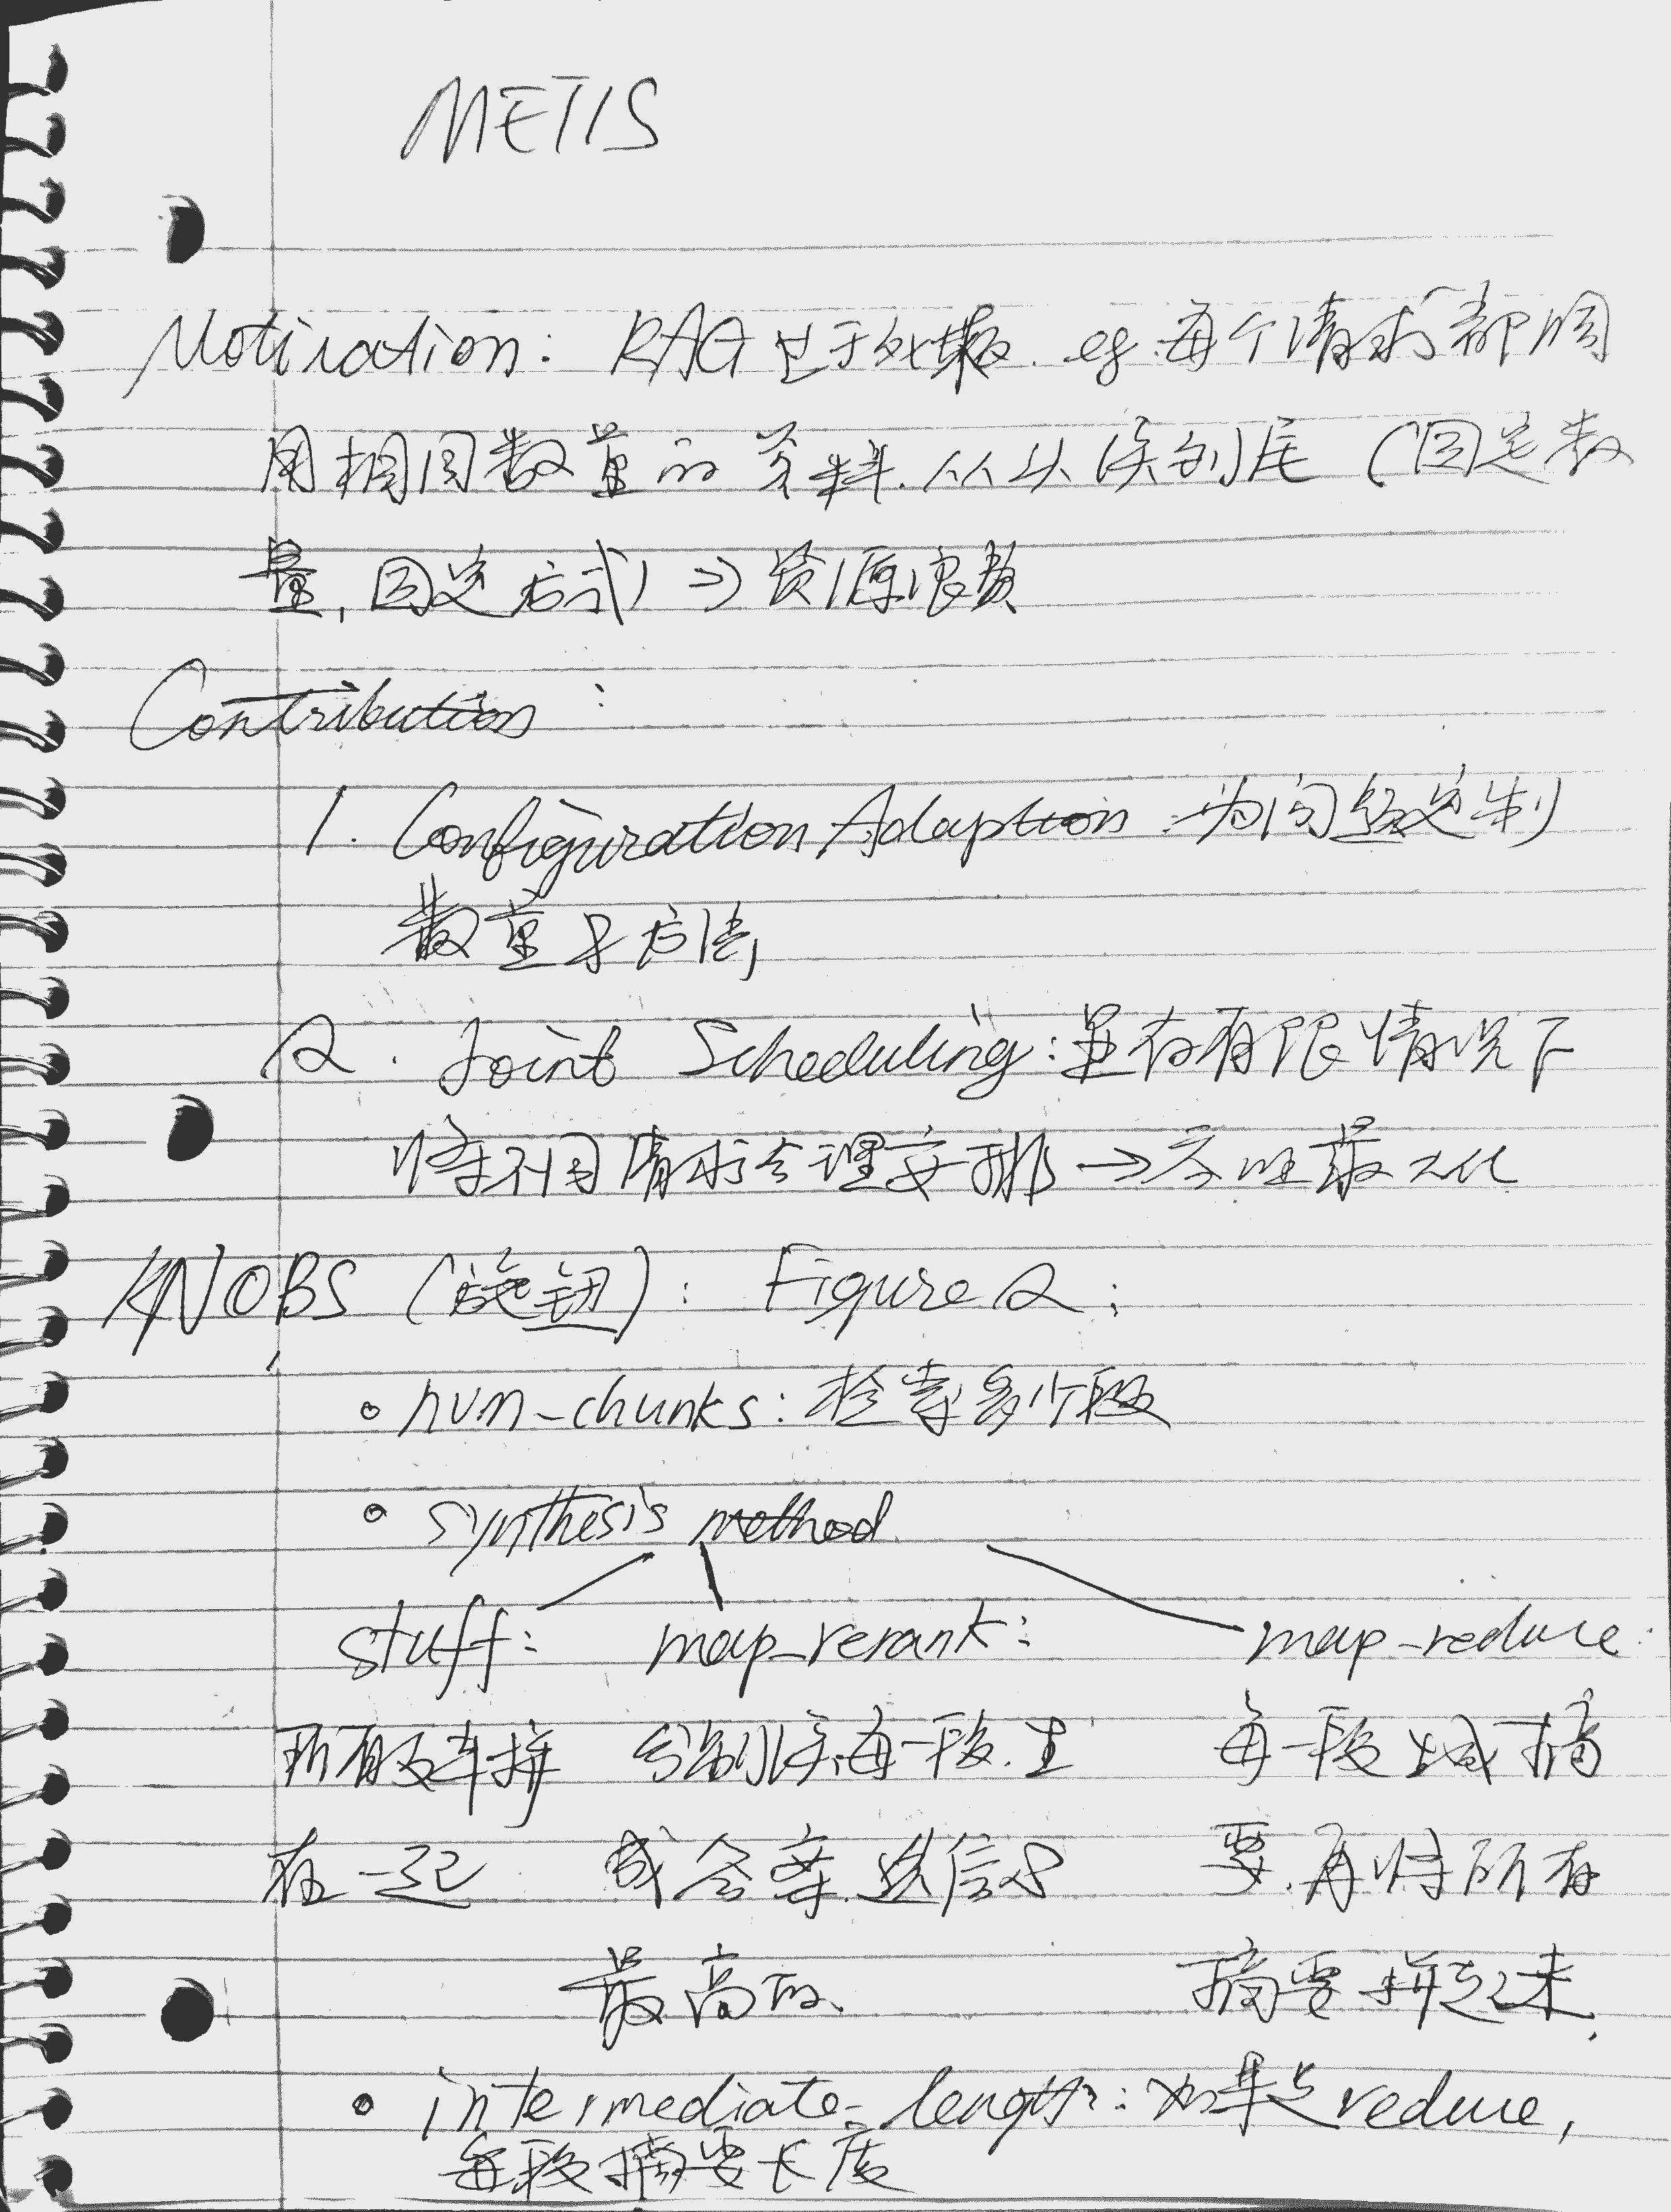 METIS
Motivation: RAG 过于死板. eg. 每个请求都调
用相同数量的资料.从头读到尾 (固定数
量, 固定方式) => 资源浪费
Contribution:
1. Configuration Adaption: 为问题定制
数量与方法
2. Joint Scheduling: 显存有限情况下
将不同请求合理安排 → 最大化
KNOBS (旋钮): Figure 2:
• num-chunks: 检索多少段
• synthesis method
stuff: map_rerank: map-reduce:
所有段连拼 分别读每一段.生 每一段生成摘
在一起 成答案.选信心 要.再将所有
最高的、 摘要拼起来.
• intermediate-length: 如果是reduce,
每段摘要长度